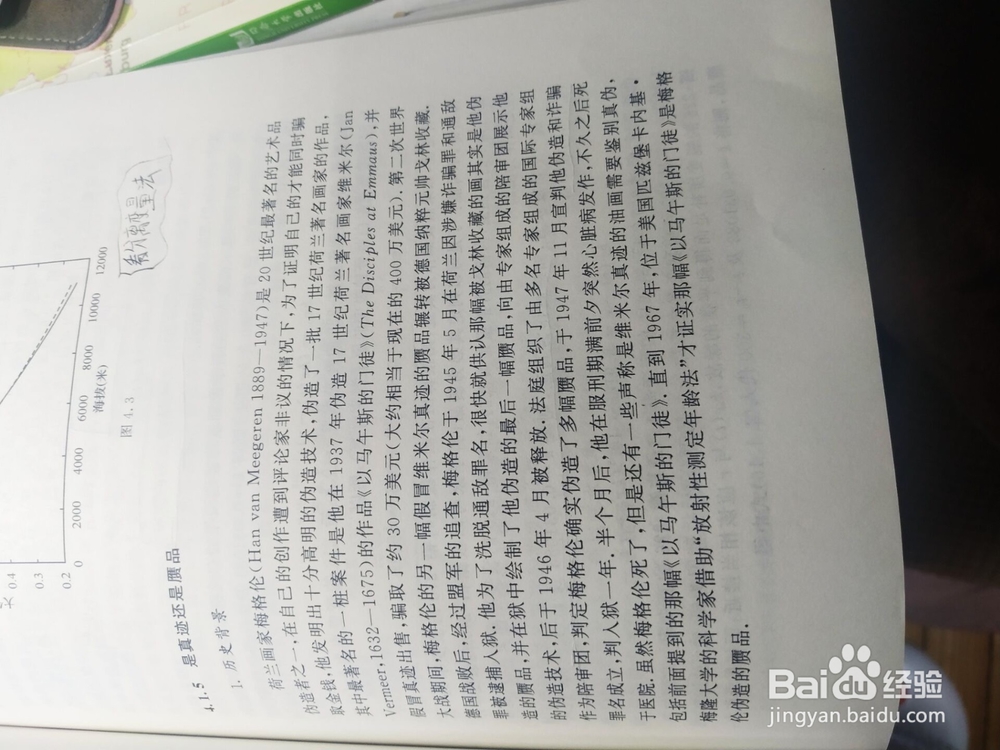 0.4
0.3
0.2
0
2000
4000
6000
8000
10000
12000
海拔(米)
图 4.3
4.1.5 是真迹还是赝品
1. 历史背景
荷兰画家梅格伦(Han van Meegeren 1889—1947)是 20 世纪最著名的艺术品
伪造者之一,在自己的创作遭到评论家非议的情况下,为了证明自己的才能同时骗
取金钱,他发明出十分高明的伪造技术,伪造了一批 17 世纪荷兰著名画家的作品,
其中最著名的一桩案件是他在 1937 年伪造 17 世纪荷兰著名画家维米尔(Jan
Vermeer,1632—1675)的作品《以马午斯的门徒》(The Disciples at Emmaus),并
假冒真迹出售,骗取了约 30 万美元(大约相当于现在的 400 万美元).第二次世界
大战期间,梅格伦的另一幅假冒维米尔真迹的赝品辗转被德国纳粹元帅戈林收藏.
德国战败后,经过盟军的追查,梅格伦于 1945 年 5 月在荷兰因涉嫌诈骗罪和通敌
罪被逮捕入狱.他为了洗脱通敌罪名,很快就供认那幅被戈林收藏的画其实是他伪
造的赝品,并在狱中绘制了他伪造的最后一幅赝品,向由专家组成的陪审团展示他
的伪造技术,后于 1946 年 4 月被释放.法庭组织了由多名专家组成的国际专家组
作为陪审团,判定梅格伦确实伪造了多幅赝品,于 1947 年 11 月宣判他伪造和诈骗
罪名成立,判入狱一年.半个月后,他在服刑期满前夕突然心脏病发作,不久之后死
于医院.虽然梅格伦死了,但是还有一些声称是维米尔真迹的油画需要鉴别真伪,
包括前面提到的那幅《以马午斯的门徒》.直到 1967 年,位于美国匹兹堡卡内基·
梅隆大学的科学家借助“放射性测定年龄法”才证实那幅《以马午斯的门徒》是梅格
伦伪造的赝品.
Baidu 经验
jingyan.baidu.com